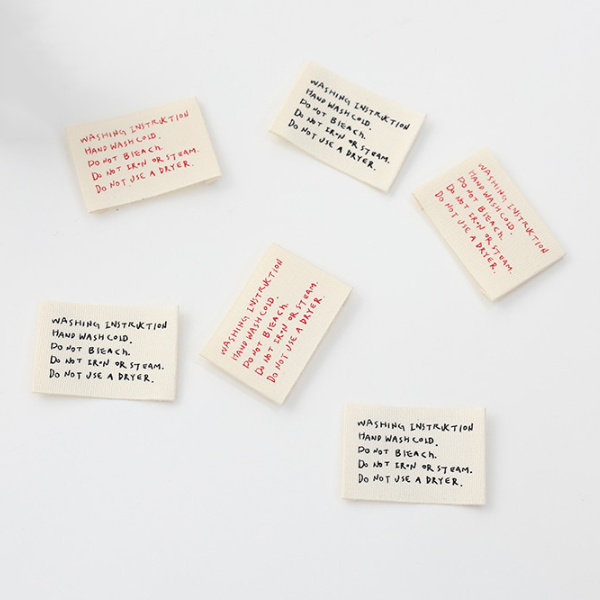 WASHING INSTRUCTION
HAND WASH COLD.
DO NOT BLEACH.
DO NOT IRON OR STEAM.
DO NOT USE A DRYER.
WASHING INSTRUCTION
HAND WASH COLD.
DO NOT BLEACH.
DO NOT IRON OR STEAM.
DO NOT USE A DRYER.
WASHING INSTRUCTION
HAND WASH COLD.
DO NOT BLEACH.
DO NOT IRON OR STEAM.
DO NOT USE A DRYER.
WASHING INSTRUCTION
HAND WASH COLD.
DO NOT BLEACH.
DO NOT IRON OR STEAM.
DO NOT USE A DRYER.
WASHING INSTRUCTION
HAND WASH COLD.
DO NOT BLEACH.
DO NOT IRON OR STEAM.
DO NOT USE A DRYER.
WASHING INSTRUCTION
HAND WASH COLD.
DO NOT BLEACH.
DO NOT IRON OR STEAM.
DO NOT USE A DRYER.